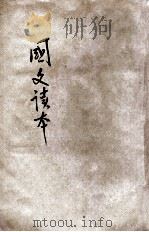 國文讀本
mtoou.info